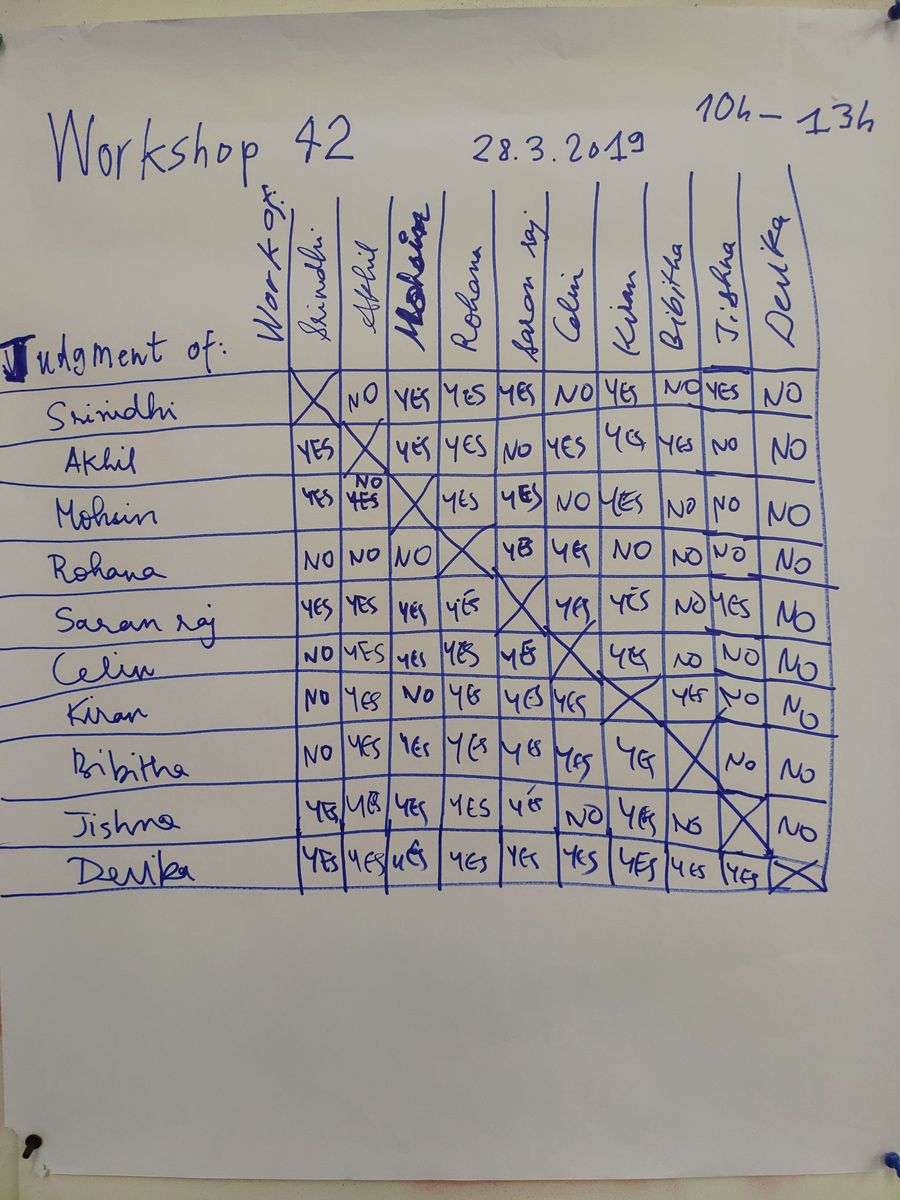 Workshop 42 28.3.2019 10h - 13h
Work of: Srinidhi Akhil Mohsin Rohana Saran raj Celin Kiran Bibitha Jishna Devika
Judgment of:
Srinidhi NO YES YES YES NO YES NO YES NO
Akhil YES YES YES NO YES YES YES NO NO
Mohsin YES NO YES YES YES NO YES NO NO NO
Rohana NO NO NO YES YES NO NO NO NO
Saran raj YES YES YES YES YES YES NO YES NO
Celin NO YES YES YES YES YES NO NO NO
Kiran NO YES NO YES YES YES YES NO NO
Bibitha NO YES YES YES YES YES YES NO NO
Jishna YES YES YES YES YES NO YES NO NO
Devika YES YES YES YES YES YES YES YES YES